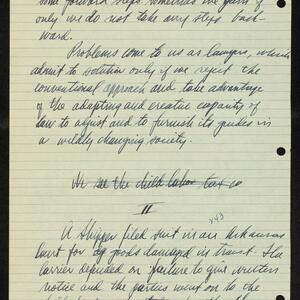 some forward steps. Sometimes we gain if
only we do not take any steps back-
ward.
Problems come to us as lawyers, which
admit to solution only if we reject the
conventional approach and take advantage
of the adapting and creative capacity of
law to adjust and to furnish its guides in
a wildly changing society.
In the child labor tax co
II
243
A shipper filed suit in an Arkansas
court for goods damaged in transit. The
carrier defended on failure to give written
notice and the parties went on to the